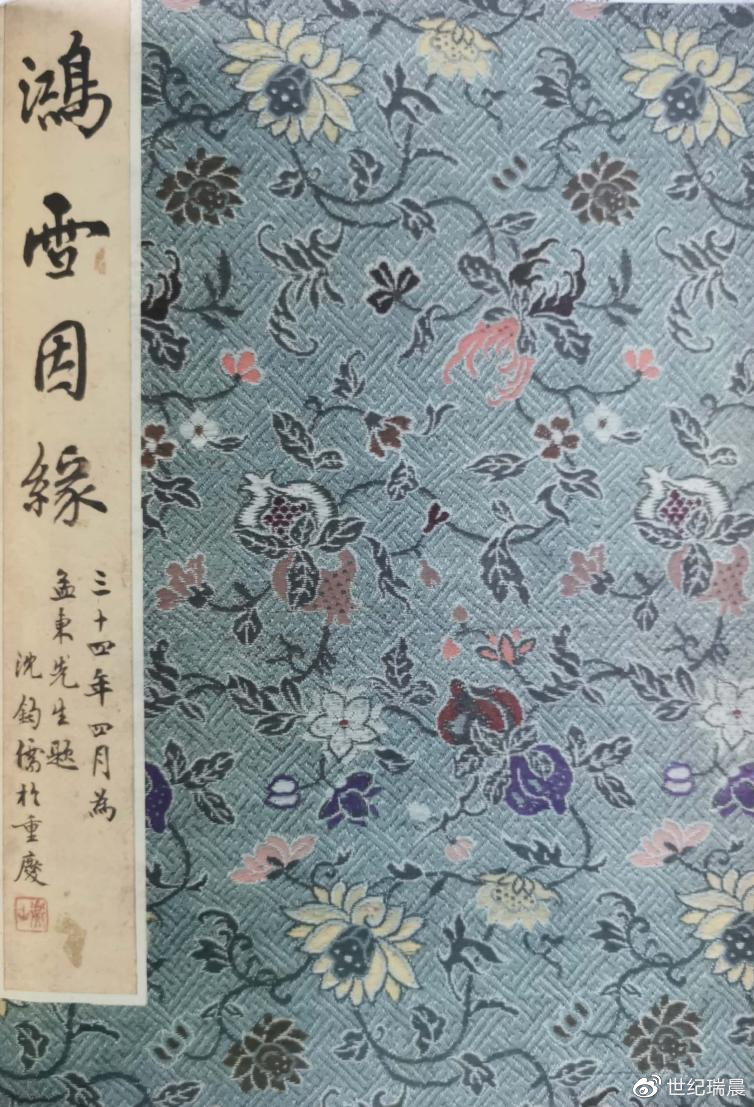 鴻雪因緣
三十四年四月為
孟東先生題
沈鈞儒於重慶
世纪瑞晨